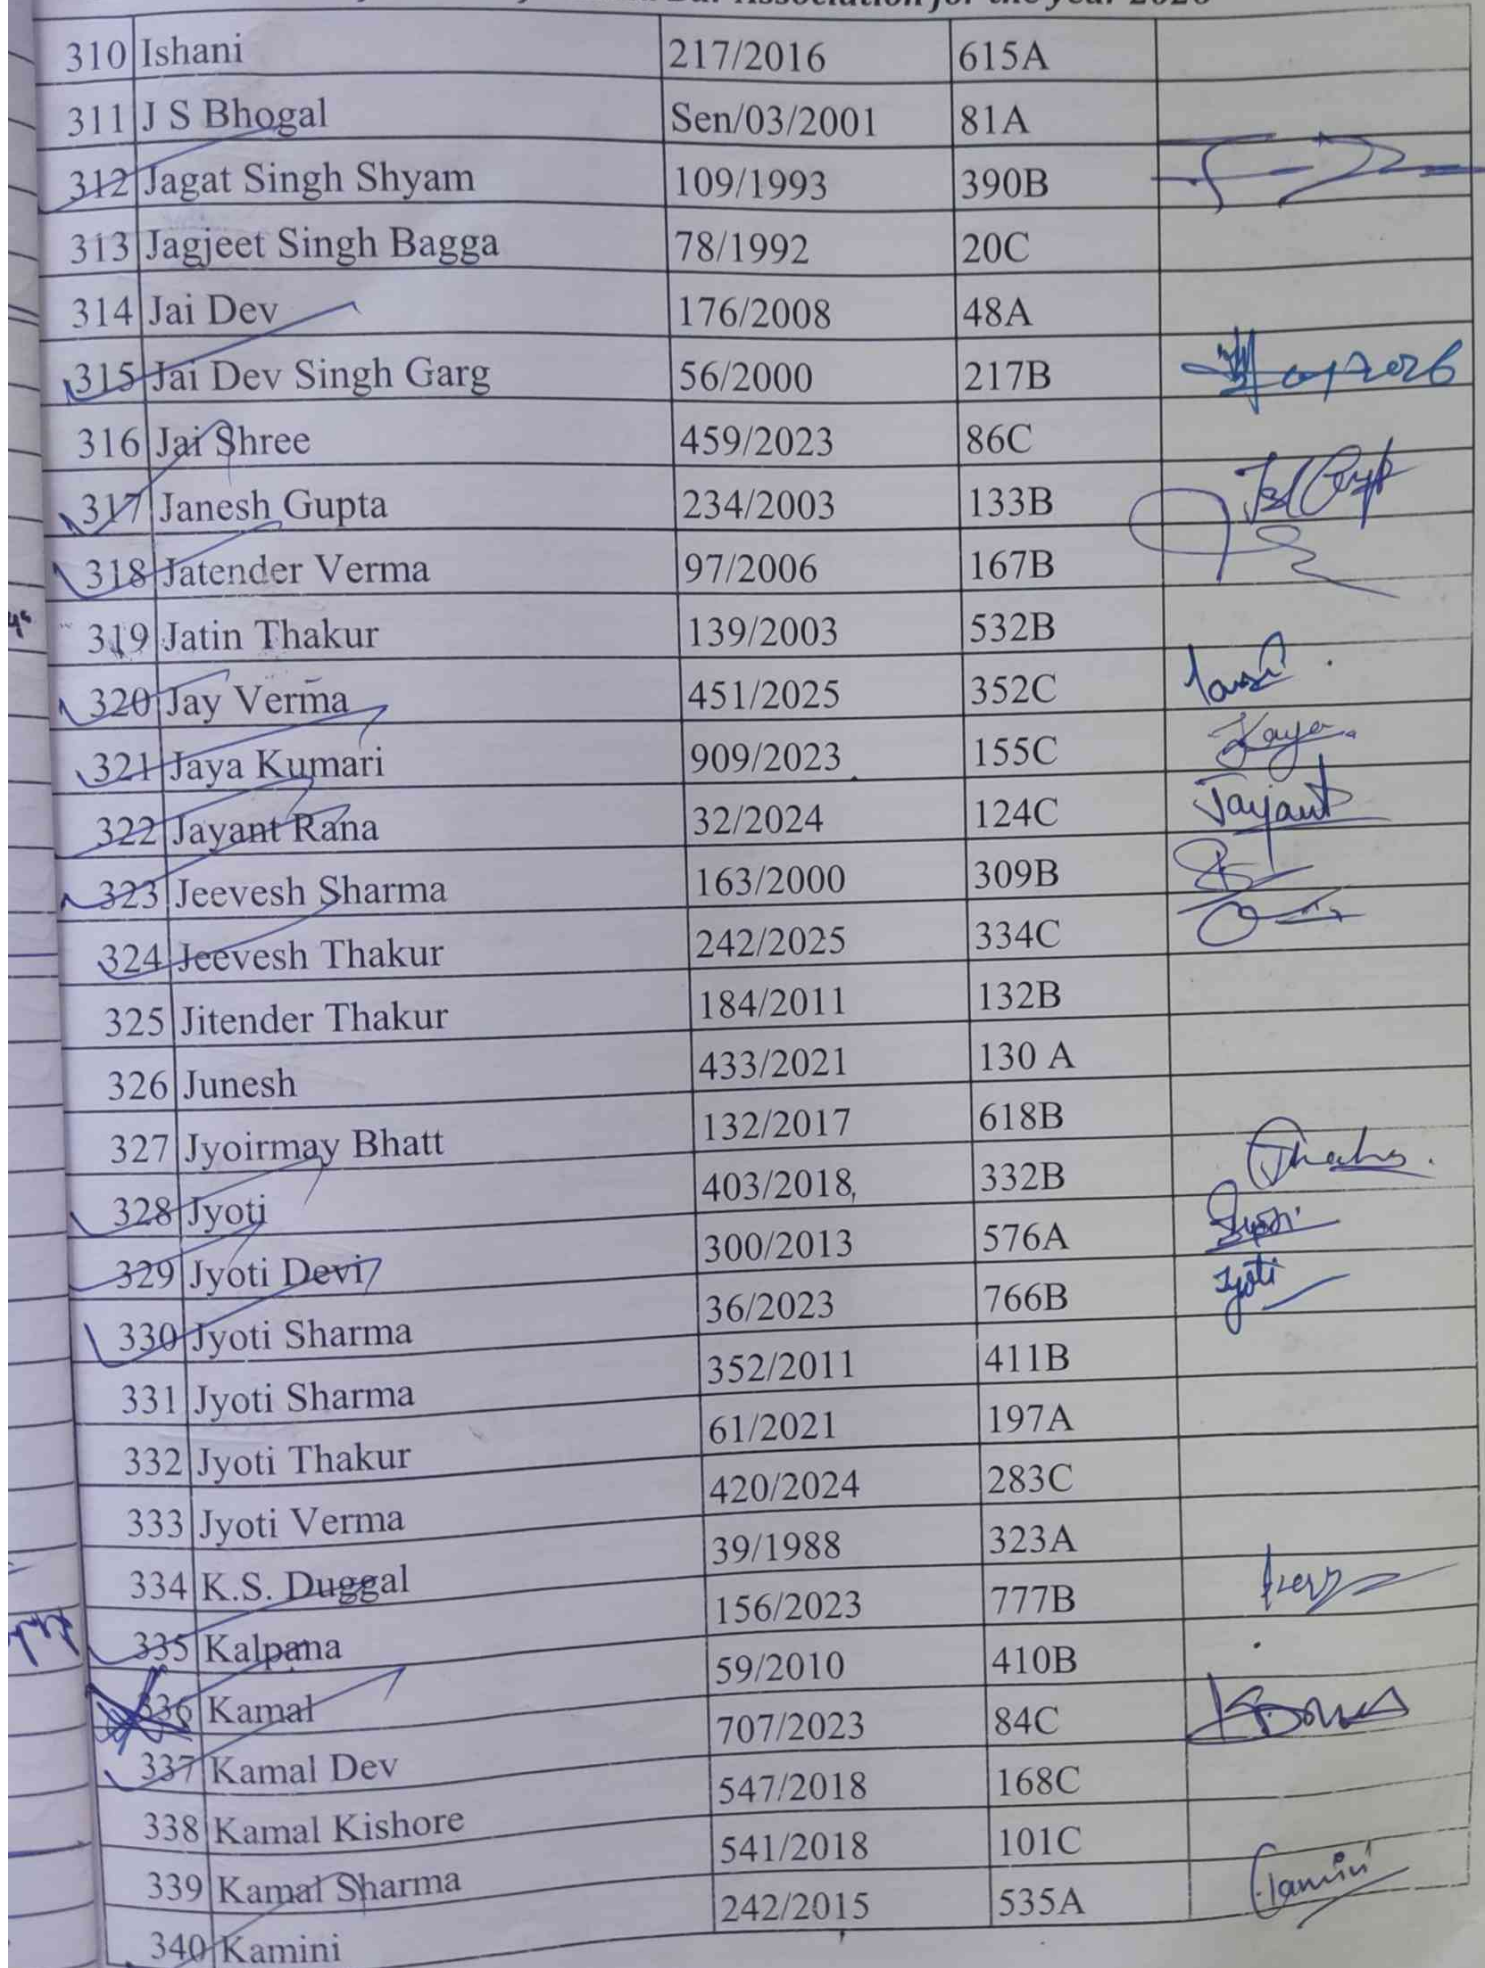 Association for the year 2026
310 Ishani 217/2016 615A
311 J S Bhogal Sen/03/2001 81A
312 Jagat Singh Shyam 109/1993 390B
313 Jagjeet Singh Bagga 78/1992 20C
314 Jai Dev 176/2008 48A
315 Jai Dev Singh Garg 56/2000 217B
316 Jai Shree 459/2023 86C
317 Janesh Gupta 234/2003 133B
318 Jatender Verma 97/2006 167B
319 Jatin Thakur 139/2003 532B
320 Jay Verma 451/2025 352C
321 Jaya Kumari 909/2023 155C
322 Jayant Rana 32/2024 124C Jayant
323 Jeevesh Sharma 163/2000 309B
324 Jeevesh Thakur 242/2025 334C
325 Jitender Thakur 184/2011 132B
326 Junesh 433/2021 130 A
327 Jyoirmay Bhatt 132/2017 618B
328 Jyoti 403/2018 332B
329 Jyoti Devi 300/2013 576A
330 Jyoti Sharma 36/2023 766B Jyoti
331 Jyoti Sharma 352/2011 411B
332 Jyoti Thakur 61/2021 197A
333 Jyoti Verma 420/2024 283C
334 K.S. Duggal 39/1988 323A
335 Kalpana 156/2023 777B
336 Kamal 59/2010 410B
337 Kamal Dev 707/2023 84C
338 Kamal Kishore 547/2018 168C
339 Kamal Sharma 541/2018 101C
340 Kamini 242/2015 535A Kamini